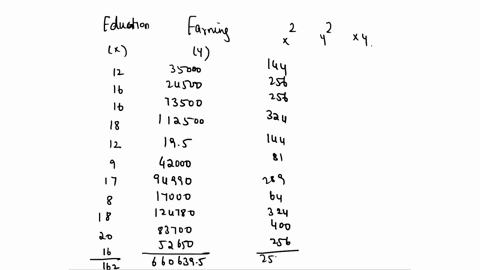 Eduation Earning x² y² xy.
(x) (y)
12 35000 144
16 24500 256
16 73500 256
18 112500 324
12 19.5 144
9 42000 81
17 94990 289
8 17000 64
18 124780 324
20 83700 400
16 52650 256
162 660639.5 25